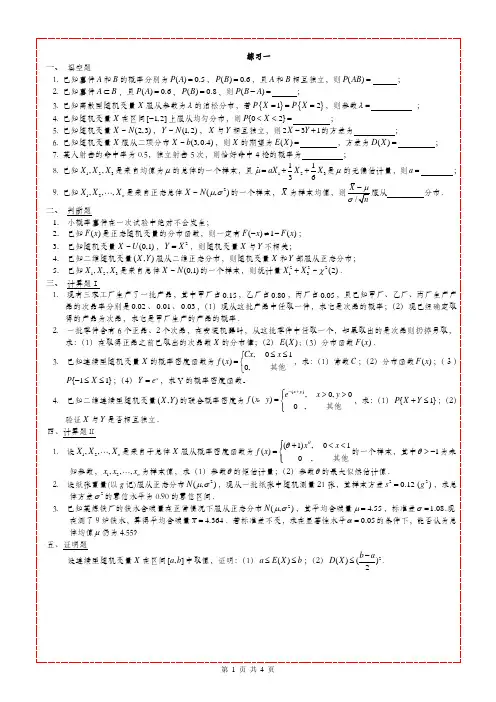 练习一
一、 填空题
1. 已知事件 A 和 B 的概率分别为 P(A) = 0.5，P(B) = 0.6，且 A 和 B 相互独立，则 P(AB) = ；
2. 已知事件 A ⊂ B ，且 P(A) = 0.6，P(B) = 0.8，则 P(B−A) = ；
3. 已知离散型随机变量 X 服从参数为 λ 的泊松分布，若 P{X = 1} = P{X = 2}，则参数 λ = ；
4. 已知随机变量 X 在区间 [−1,2] 上服从均匀分布，则 P{0 < X < 2} = ；
5. 已知随机变量 X ~ N(2,3)，Y ~ N(1,2)，X 与 Y 相互独立，则 2X − 3Y + 1 的方差为 ；
6. 已知随机变量 X 服从二项分布 X ~ b(3,0.4)，则 X 的期望为 E(X) = ，方差为 D(X) = ；
7. 某人射击的命中率为 0.5，独立射击 5 次，则恰好命中 4 枪的概率为 ；
8. 已知 X₁, X₂, X₃ 是来自均值为 μ 的总体的一个样本，且 μ̂ = aX₁ + 1/3 X₂ + 1/6 X₃ 是 μ 的无偏估计量，则 a = ；
9. 已知 X₁, X₂, ⋯, Xₙ 是来自正态总体 X ~ N(μ,σ²) 的一个样本，X̄ 为样本均值，则 (X̄ − μ)/(σ/√n) 服从 分布．
二、 判断题
1. 小概率事件在一次试验中绝对不会发生；
2. 已知 F(x) 是正态随机变量的分布函数，则一定有 F(−x) ≠ 1 − F(x)；
3. 已知随机变量 X ~ U(0,1)，Y = X²，则随机变量 X 与 Y 不相关；
4. 已知二维随机变量 (X,Y) 服从二维正态分布，则随机变量 X 和 Y 都服从正态分布；
5. 已知 X₁, X₂, ⋯, Xₙ 是来自总体 X ~ N(0,1) 的一个样本，则统计量 X₁² + X₂² ~ χ²(2)．
三、 计算题 I
1. 现有三家工厂生产了一批产品，其中甲厂占 0.15，乙厂占 0.80，丙厂占 0.05，且已知甲厂、乙厂、丙厂生产产
品的次品率分别是 0.02、0.01、0.03，（1）现从这批产品中任取一件，求它是次品的概率；（2）现已经确定取
得的产品为次品，求它是甲厂生产的产品的概率．
2. 一批零件含有 6 个正品、2 个次品，在安装机器时，从这批零件中任取一个，如果取出的是次品则扔掉另取，
求：（1）在取得正品之前已取出的次品数 X 的分布律；（2）E(X)；（3）分布函数 F(x)．
3. 已知连续型随机变量 X 的概率密度函数为 f(x) = {Cx, 0 ≤ x ≤ 1; 0, 其他，求：（1）常数 C；（2）分布函数 F(x)；（3）
P{−1 ≤ X ≤ 1}；（4）Y = eˣ，求 Y 的概率密度函数。
4. 已知二维连续型随机变量 (X,Y) 的联合概率密度为 f(x, y) = {e^{−(x+y)}， x > 0, y > 0; 0 ， 其他，求：（1）P{X + Y ≤ 1}；（2）
验证 X 与 Y 是否相互独立．
四、计算题 II
1. 设 X₁, X₂, ⋯, Xₙ 是来自于总体 X 服从概率密度函数为 f(x) = {(θ + 1)x^θ， 0 < x < 1; 0 ， 其他 的一个样本，其中 θ > −1 为未
知参数，x₁, x₂, ⋯, xₙ 为样本值，求（1）参数 θ 的矩估计量；（2）参数 θ 的最大似然估计值．
2. 设纸张重量(以 g 记)服从正态分布 N(μ,σ²)，现从一批纸张中随机测量 21 张，其样本方差 s² = 0.12 (g²)，求总
体方差 σ² 的置信水平为 0.90 的置信区间．
3. 已知某炼铁厂的铁水含碳量在正常情况下服从正态分布 N(μ,σ²)，其平均含碳量 μ = 4.55，标准差 σ = 1.08.现
在测了 9 炉铁水，算得平均含碳量 x̄ = 4.364．若标准差不变，求在显著性水平 α = 0.05 的条件下，能否认为总
体均值 μ 仍为 4.55？
五、证明题
设连续型随机变量 X 在区间 [a,b] 中取值，证明：（1）a ≤ E(X) ≤ b；（2）D(X) ≤ ((b − a)/2)²．
第 1 页 共 4 页